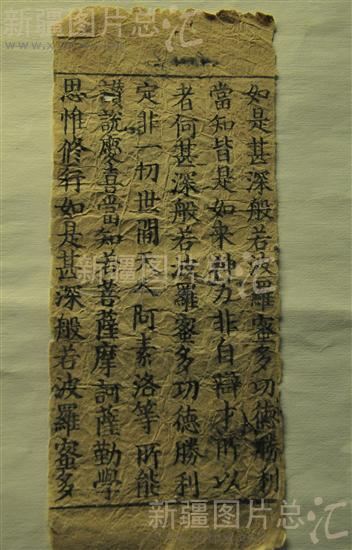 如是甚深般若波羅蜜多功德勝利
當知皆是如来神力非自辯才所以
者何甚深般若波羅蜜多功德勝利
定非一切世間天人阿素洛等所能
讃說慶喜當知若菩薩摩訶薩勤學
思惟修行如是甚深般若波羅蜜多
新疆图片总汇
新疆图片总汇
新疆图片总汇